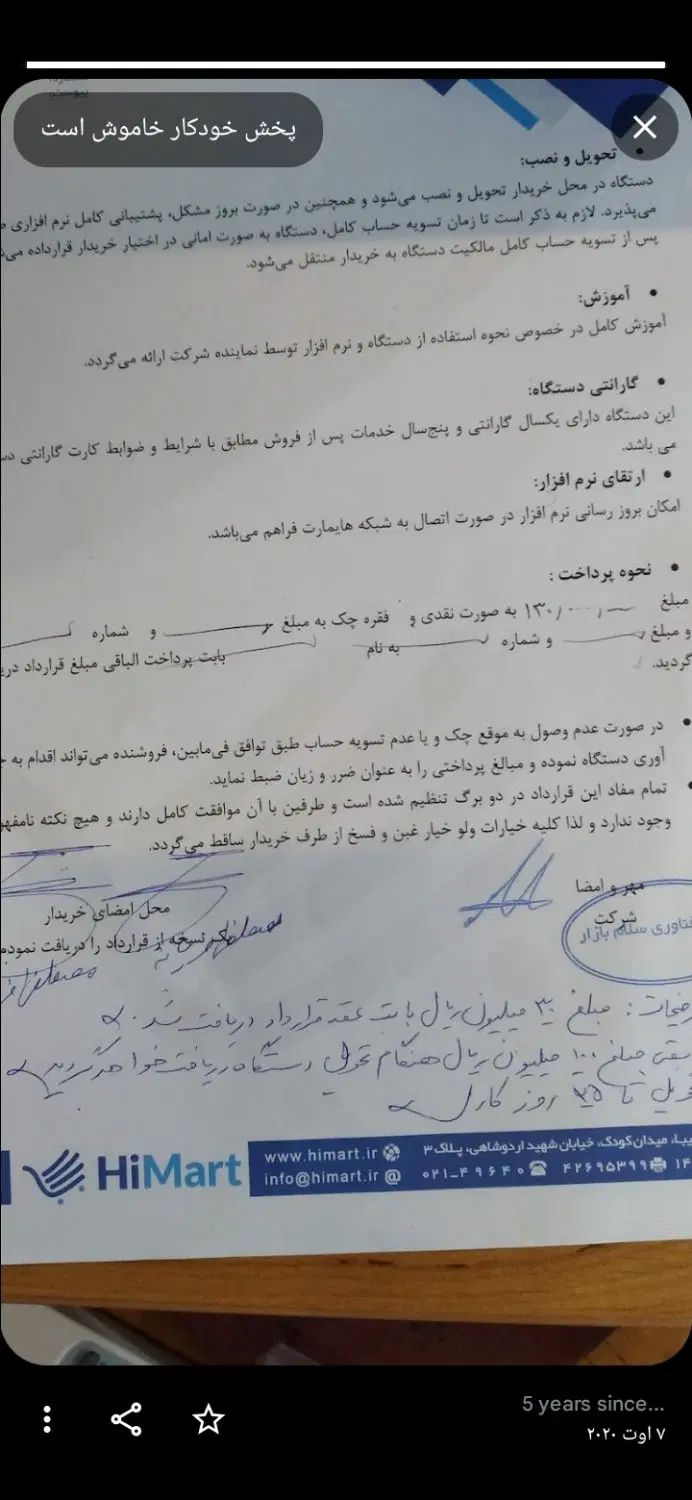 پیوست:
پخش خودکار خاموش است
• تحویل و نصب:
دستگاه در محل خریدار تحویل و نصب می‌شود و همچنین در صورت بروز مشکل، پشتیبانی کامل نرم افزاری
می‌پذیرد. لازم به ذکر است تا زمان تسویه حساب کامل، دستگاه به صورت امانی در اختیار خریدار قرارداده
پس از تسویه حساب کامل مالکیت دستگاه به خریدار منتقل می‌شود.
• آموزش:
آموزش کامل در خصوص نحوه استفاده از دستگاه و نرم افزار توسط نماینده شرکت ارائه می‌گردد.
• گارانتی دستگاه:
این دستگاه دارای یکسال گارانتی و پنج‌سال خدمات پس از فروش مطابق با شرایط و ضوابط کارت گارانتی
می باشد.
• ارتقای نرم افزار:
امکان بروز رسانی نرم افزار در صورت اتصال به شبکه هایمارت فراهم می‌باشد.
• نحوه پرداخت :
مبلغ ۱۳۰/۰۰۰/۰۰۰ به صورت نقدی و فقره چک به مبلغ و شماره
و مبلغ و شماره به نام بابت پرداخت الباقی مبلغ قرارداد
گردید.
• در صورت عدم وصول به موقع چک و یا عدم تسویه حساب طبق توافق فی‌مابین، فروشنده می‌تواند اقدام به
آوری دستگاه نموده و مبالغ پرداختی را به عنوان ضرر و زیان ضبط نماید.
• تمام مفاد این قرارداد در دو برگ تنظیم شده است و طرفین با آن موافقت کامل دارند و هیچ نکته
وجود ندارد و لذا کلیه خیارات ولو خیار غبن و فسخ از طرف خریدار ساقط می‌گردد.
مهر و امضا
شرکت
محل امضای خریدار
نسخه از قرارداد را دریافت نمودم
سلام بازار
مبلغ ۳۰ میلیون ریال بابت عقد قرارداد دریافت شد.
مبلغ ۱۰۰ میلیون ریال هنگام تحویل دستگاه دریافت خواهد گردید
تا ۳۵ روز کاری
HiMart
www.himart.ir
info@himart.ir
میدان کودک، خیابان شهید اردوشاهی، پلاک ۳
۰۲۱_۴۹۶۴۰ ۴۲۶۹۵۳۹۹
5 years since...
۷ اوت ۲۰۲۰